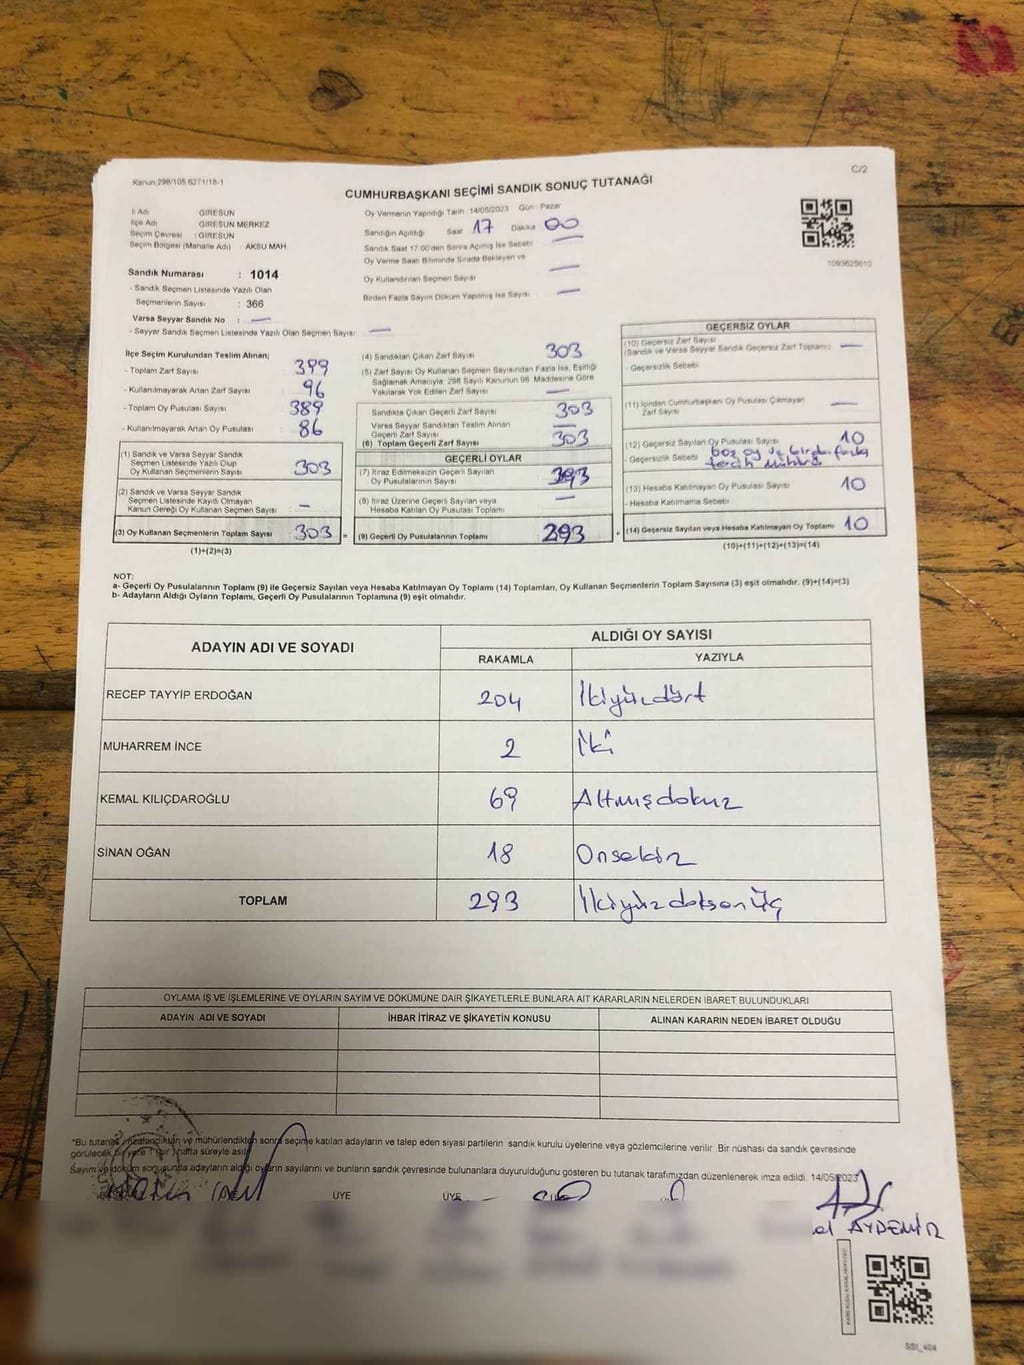 Kanun 298/105 6271/18-1
C/2
CUMHURBAŞKANI SEÇİMİ SANDIK SONUÇ TUTANAĞI
İl Adı GİRESUN
İlçe Adı GİRESUN MERKEZ
Seçim Çevresi : GİRESUN
Seçim Bölgesi (Mahalle Adı) : AKSU MAH.
Oy Vermenin Yapıldığı Tarih 14/05/2023 Gün : Pazar
Sandığın Açıldığı Saat 17 Dakika 00
Sandık Saat 17.00'den Sonra Açılmış İse Sebebi —
Oy Verme Saati Bitiminde Sırada Bekleyen ve
Oy Kullandırılan Seçmen Sayısı —
Birden Fazla Sayım Döküm Yapılmış İse Sayısı —
1093625610
Sandık Numarası : 1014
- Sandık Seçmen Listesinde Yazılı Olan
Seçmenlerin Sayısı : 366
Varsa Seyyar Sandık No : —
- Seyyar Sandık Seçmen Listesinde Yazılı Olan Seçmen Sayısı : —
İlçe Seçim Kurulundan Teslim Alınan;
- Toplam Zarf Sayısı : 399
- Kullanılmayarak Artan Zarf Sayısı : 96
- Toplam Oy Pusulası Sayısı : 389
- Kullanılmayarak Artan Oy Pusulası : 86
(1) Sandık ve Varsa Seyyar Sandık
Seçmen Listesinde Yazılı Olup
Oy Kullanan Seçmenlerin Sayısı 303
(2) Sandık ve Varsa Seyyar Sandık
Seçmen Listesinde Kayıtlı Olmayan
Kanun Gereği Oy Kullanan Seçmen Sayısı —
(3) Oy Kullanan Seçmenlerin Toplam Sayısı 303 =
(1)+(2)=(3)
(4) Sandıktan Çıkan Zarf Sayısı 303
(5) Zarf Sayısı Oy Kullanan Seçmen Sayısından Fazla İse, Eşitliği
Sağlamak Amacıyla, 298 Sayılı Kanunun 98. Maddesine Göre
Yakılarak Yok Edilen Zarf Sayısı —
Sandıkta Çıkan Geçerli Zarf Sayısı 303
Varsa Seyyar Sandıktan Teslim Alınan
Geçerli Zarf Sayısı —
(6) Toplam Geçerli Zarf Sayısı 303
GEÇERLİ OYLAR
(7) İtiraz Edilmeksizin Geçerli Sayılan
Oy Pusulalarının Sayısı 293
(8) İtiraz Üzerine Geçerli Sayılan veya
Hesaba Katılan Oy Pusulası Toplamı —
(9) Geçerli Oy Pusulalarının Toplamı 293 +
GEÇERSİZ OYLAR
(10) Geçersiz Zarf Sayısı
(Sandık ve Varsa Seyyar Sandık Geçersiz Zarf Toplamı) —
- Geçersizlik Sebebi
(11) İçinden Cumhurbaşkanı Oy Pusulası Çıkmayan
Zarf Sayısı —
(12) Geçersiz Sayılan Oy Pusulası Sayısı 10
- Geçersizlik Sebebi boş oy ve birden fazla
tercih mührü
(13) Hesaba Katılmayan Oy Pusulası Sayısı 10
- Hesaba Katılmama Sebebi
(14) Geçersiz Sayılan veya Hesaba Katılmayan Oy Toplamı 10
(10)+(11)+(12)+(13)=(14)
NOT:
a- Geçerli Oy Pusulalarının Toplamı (9) ile Geçersiz Sayılan veya Hesaba Katılmayan Oy Toplamı (14) Toplamları, Oy Kullanan Seçmenlerin Toplam Sayısına (3) eşit olmalıdır. (9)+(14)=(3)
b- Adayların Aldığı Oyların Toplamı, Geçerli Oy Pusulalarının Toplamına (9) eşit olmalıdır.
ADAYIN ADI VE SOYADI ALDIĞI OY SAYISI
RAKAMLA YAZIYLA
RECEP TAYYİP ERDOĞAN 204 İkiyüzdört
MUHARREM İNCE 2 İki
KEMAL KILIÇDAROĞLU 69 Altmışdokuz
SİNAN OĞAN 18 Onsekiz
TOPLAM 293 İkiyüzdoksanüç
OYLAMA İŞ VE İŞLEMLERİNE VE OYLARIN SAYIM VE DÖKÜMÜNE DAİR ŞİKAYETLERLE BUNLARA AİT KARARLARIN NELERDEN İBARET BULUNDUKLARI
ADAYIN ADI VE SOYADI İHBAR İTİRAZ VE ŞİKAYETİN KONUSU ALINAN KARARIN NEDEN İBARET OLDUĞU
*Bu tutanak imzalandıktan ve mühürlendikten sonra seçime katılan adayların ve talep eden siyasi partilerin sandık kurulu üyelerine veya gözlemcilerine verilir. Bir nüshası da sandık çevresinde
görülecek bir yere 1 (bir) hafta süreyle asılır.
Sayım ve döküm sonucunda adayların aldığı oyların sayılarını ve bunların sandık çevresinde bulunanlara duyurulduğunu gösteren bu tutanak tarafımızdan düzenlenerek imza edildi. 14/05/2023
ÜYE ÜYE
AYDEMİR
SSI_404